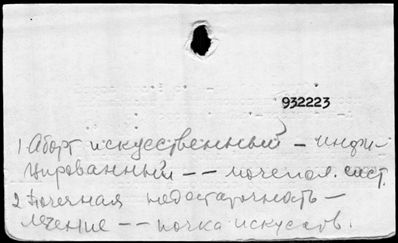 932223
1 Аборт искусственный – инфи-
цированный – – мочепол. сист.
2 Почечная недостаточность –
лечение – – почка искусств.